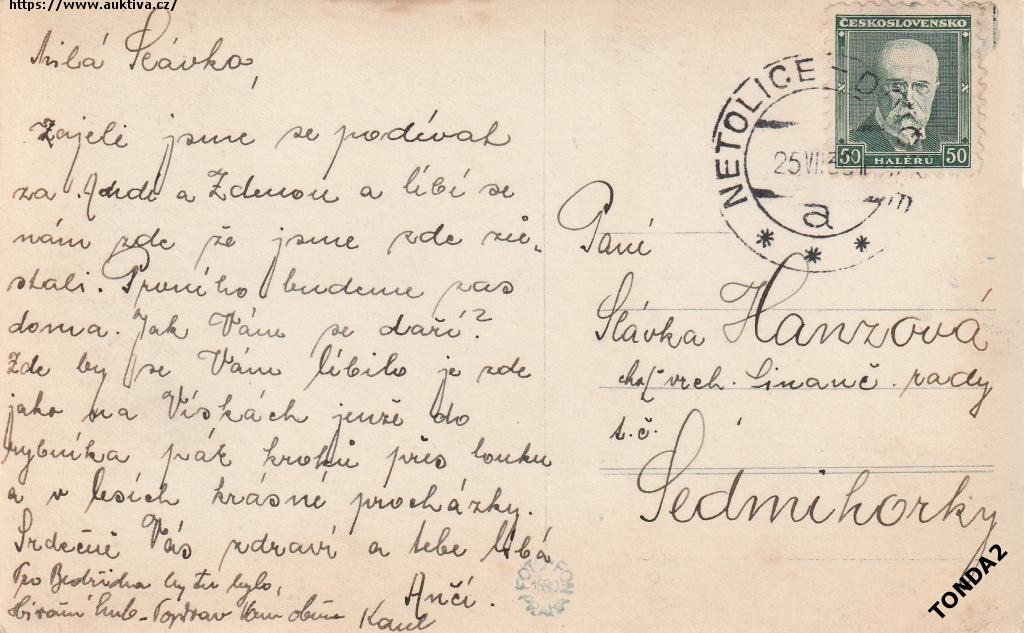 https://www.auktiva.cz/
Milá Slávko,
Zajeli jsme se podívat
za a Zdenou a líbí se
nám zde že jsme zde zů-
stali. Prvního budeme zas
doma. Jak Vám se daří?
Zde by se Vám líbilo je zde
jako na Vískách jenže do
rybníka pár kroků přes louku
a v lesích krásné procházky.
Srdečně Vás zdraví a tebe líbá
Ančí.
Pro Bedřicha by tu bylo,
sbírání hub. Pozdrav Vám oběma
Karel
ČESKOSLOVENSKO
50 HALÉŘŮ 50
NETOLICE
25 VII
a
Paní
Slávka Hanzová
choť vrch. finanč. rady
t.č.
Sedmihorky
FOTO-FON
1930
PRAHA
TONDA2